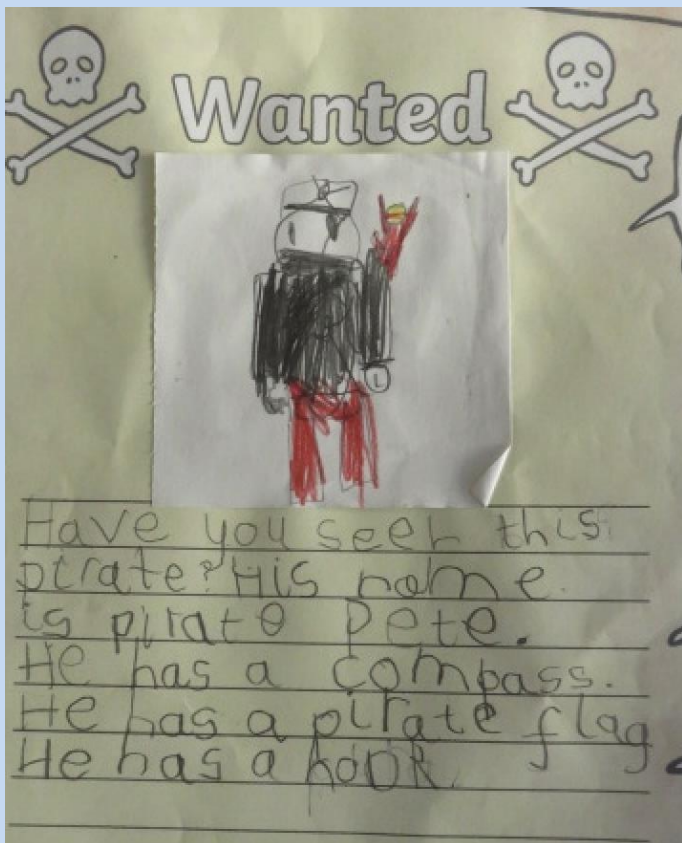 Wanted
Have you seen this
pirate? His name
is pirate Pete.
He has a compass.
He has a pirate flag
He has a hook.